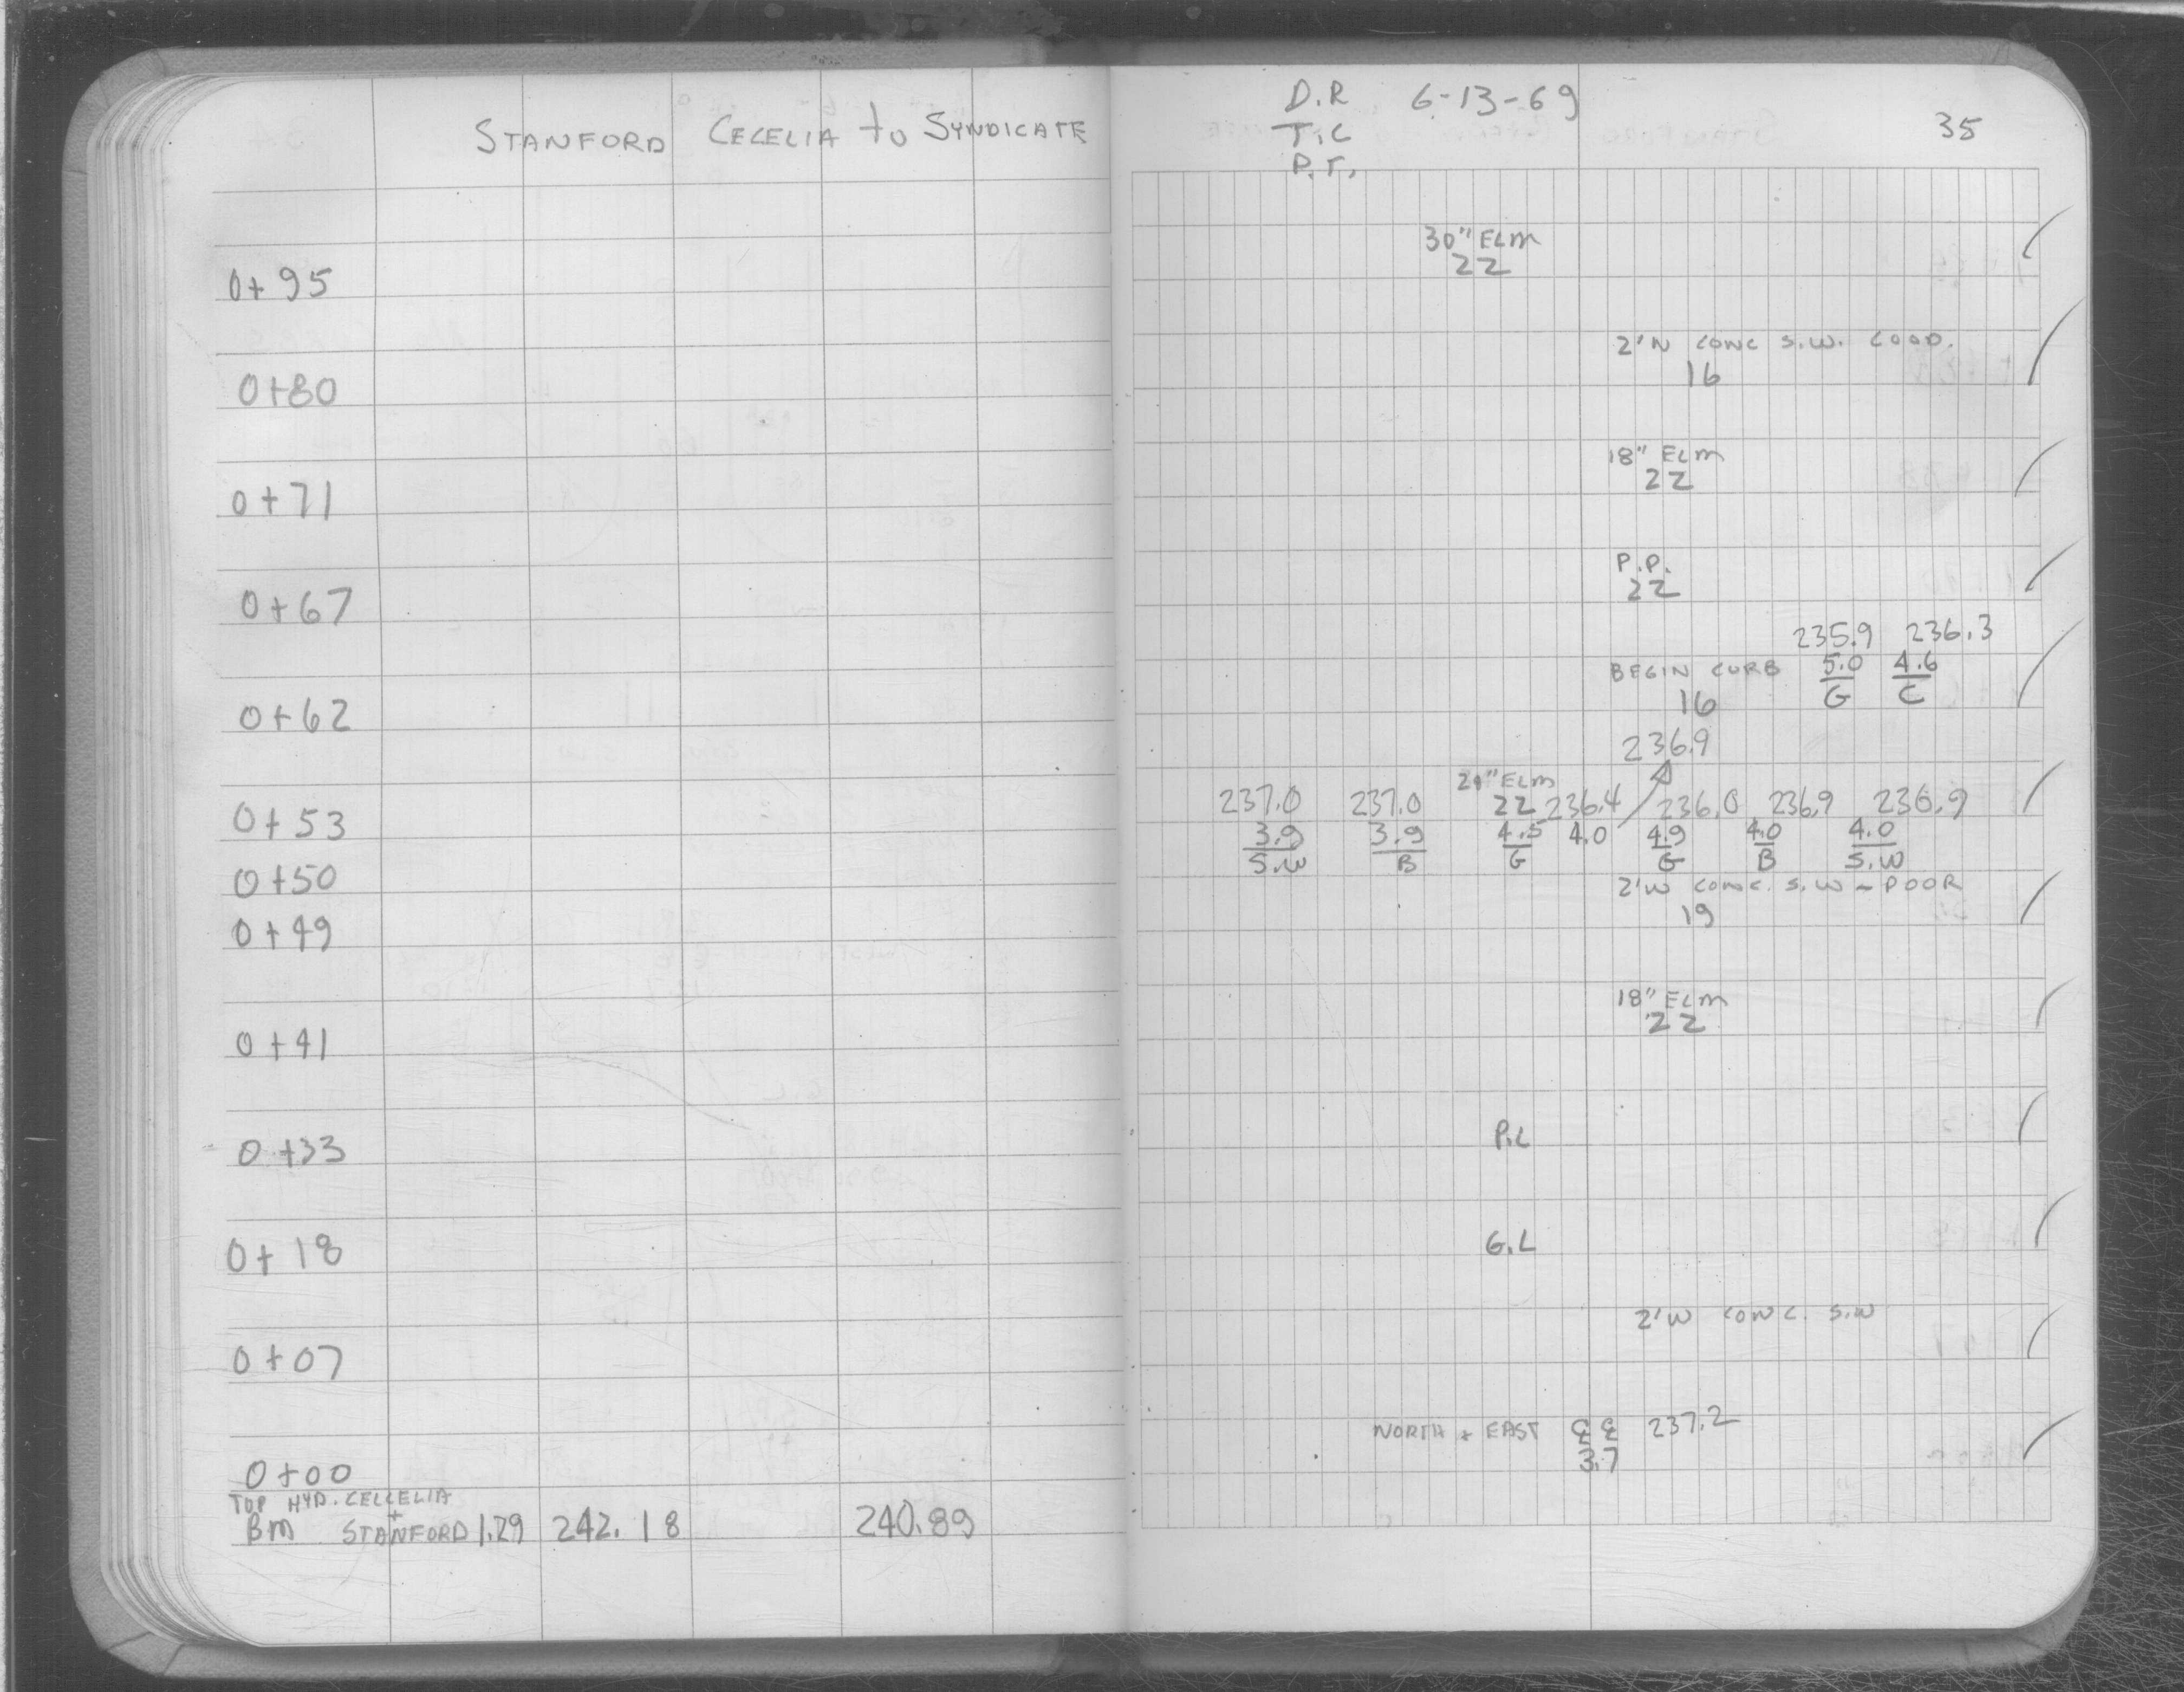 STANFORD CECELIA to SYNDICATE
0+95
0+80
0+71
0+67
0+62
0+53
0+50
0+49
0+41
0+33
0+18
0+07
0+00
TOP HYD. CELCELIA
+
BM STANFORD 1.29 242.18 240.89
D.R 6-13-69
T.C
P.T.
35
30" ELM
22
2'N CONC S.W. GOOD.
16
18" ELM
22
P.P.
22
235.9 236.3
BEGIN CURB 5.0 4.6
16 G C
236.9
ELM
237.0 237.0 22 236.4 236.0 236.9 236.9
3.9 3.9 4.5 4.0 4.9 4.0 4.0
S.W B G G B S.W
2'W CONC. S.W - POOR
19
18" ELM
22
P.L
G.L
2'W CONC. S.W
NORTH + EAST ℄ ℄ 237.2
3.7